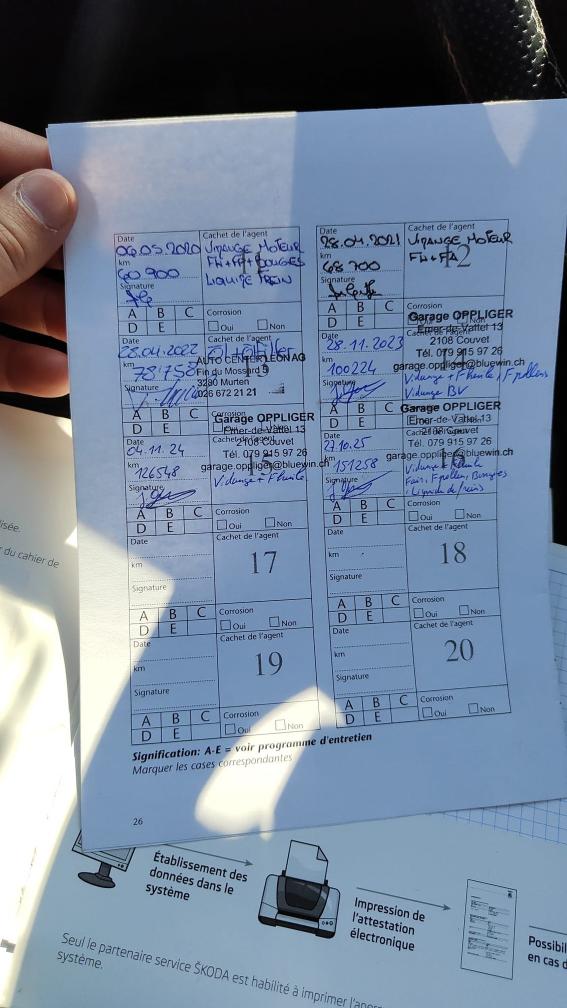 Date
06.05.2020
km
60 900
Signature
Cachet de l'agent
VIDANGE MOTEUR
FH+FP+BOUGIES
LIQUIDE FREIN
A B C
D E
Corrosion
Oui Non
Date
28.04.2021
km
68 700
Signature
Cachet de l'agent
VIDANGE MOTEUR
FH+FA
12
A B C
D E
Corrosion
28.04.2022
km
78'758
Signature
Cachet de l'agent
AUTO CENTER LEONAG
Fin du Mossard 5
3280 Murten
026 672 21 21
A B C
D E
Corrosion
28.11.2023
km
100224
Signature
Garage OPPLIGER
Emer-de-Vattel 13
2108 Couvet
Tél. 079 915 97 26
garage.oppliger@bluewin.ch
Vidange + F huile, F pollens
Vidange BV
A B C
D E
Date
04.11.24
km
126548
Signature
Garage OPPLIGER
Emer-de-Vattel 13
2108 Couvet
Tél. 079 915 97 26
garage.oppliger@bluewin.ch
Vidange + F huile
A B C
D E
Corrosion
Oui Non
27.10.25
km
151258
Signature
Garage OPPLIGER
Emer-de-Vattel 13
2108 Couvet
Tél. 079 915 97 26
garage.oppliger@bluewin.ch
16
Vidange + F huile
Fair, F pollen, Bougies
Liquide freins
A B C
D E
Corrosion
Oui Non
Date
km
Signature
Cachet de l'agent
17
A B C
D E
Corrosion
Oui Non
Date
km
Signature
Cachet de l'agent
18
A B C
D E
Corrosion
Oui Non
Date
km
Signature
Cachet de l'agent
19
A B C
D E
Corrosion
Oui Non
Date
km
Signature
Cachet de l'agent
20
A B C
D E
Corrosion
Oui Non
Signification: A-E = voir programme d'entretien
Marquer les cases correspondantes
26
du cahier de
Établissement des
données dans le
système
Impression de
l'attestation
électronique
Possibil
en cas d
Seul le partenaire service ŠKODA est habilité à imprimer l'
système.